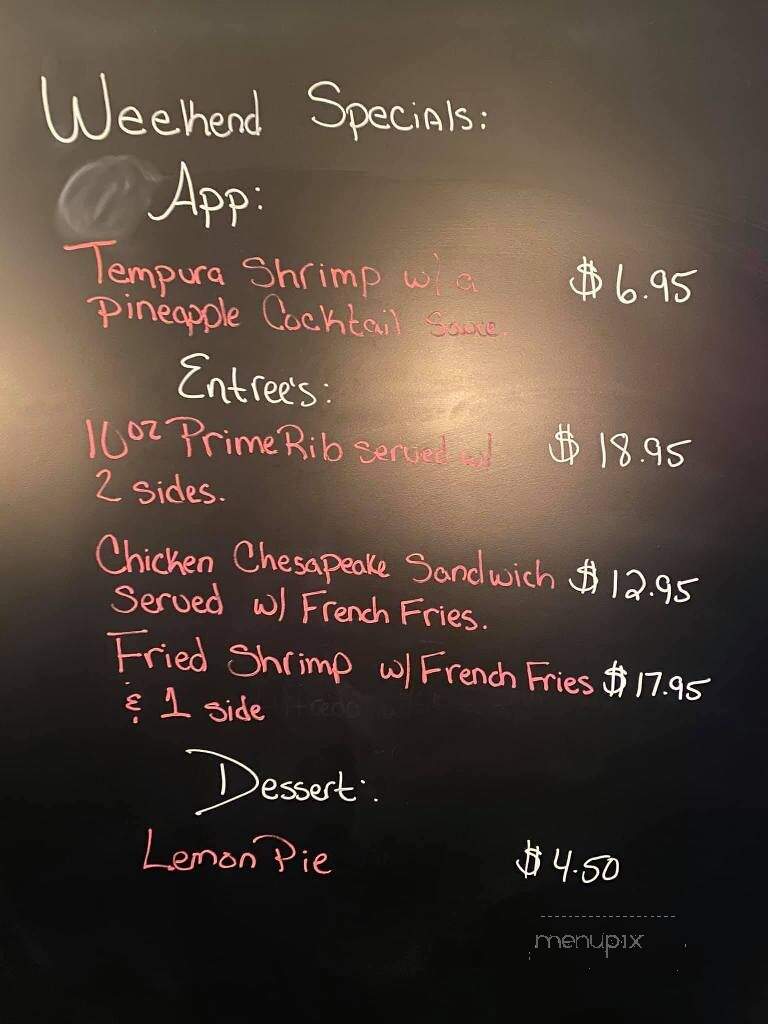 Weekend Specials:
App:
Tempura Shrimp w/ a $6.95
Pineapple Cocktail Sauce.
Entree's:
10oz Prime Rib served w/ $18.95
2 sides.
Chicken Chesapeake Sandwich $12.95
Served w/ French Fries.
Fried Shrimp w/ French Fries $17.95
& 1 side
Dessert:
Lemon Pie $4.50
menupix